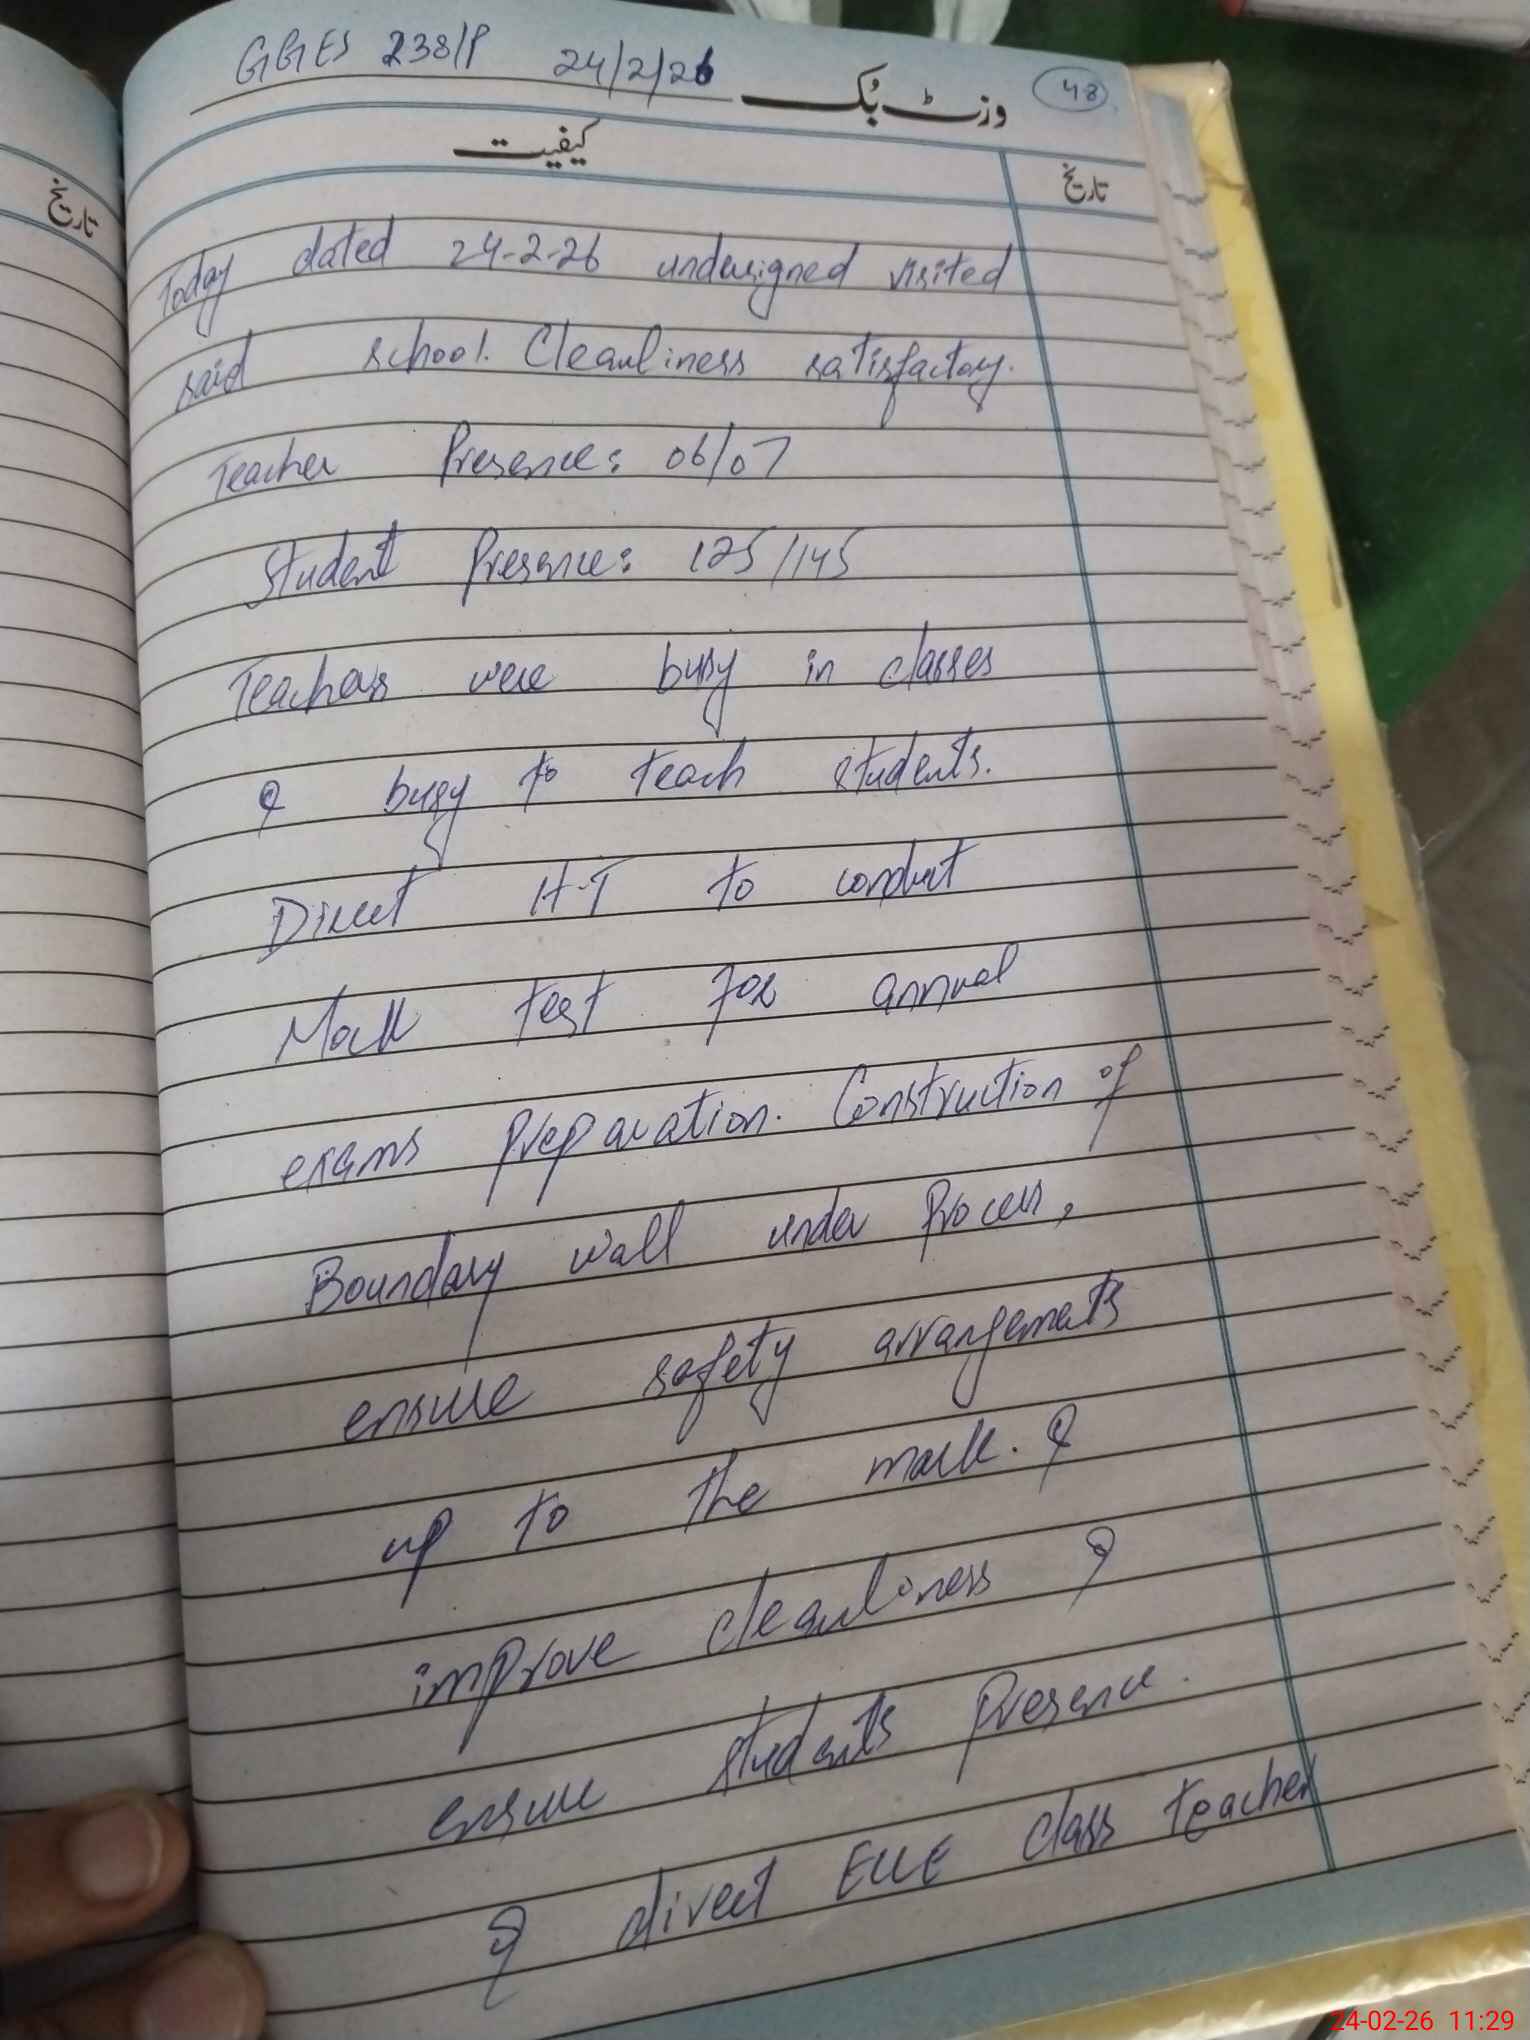 GGES 238/P 24/2/26 وزٹ بُک 48
کیفیت تاریخ
تاریخ
Today dated 24-2-26 undersigned visited
said school. Cleanliness satisfactory.
Teacher Presence: 06/07
Student Presence: 125/145
Teachers were busy in classes
& busy to teach students.
Direct H-T to conduct
Mock test for annual
exams preparation. Construction of
Boundary wall under Process,
ensure safety arrangements
up to the mark. &
improve cleanliness &
ensure students Presence.
& direct ECCE class teacher
24-02-26 11:29